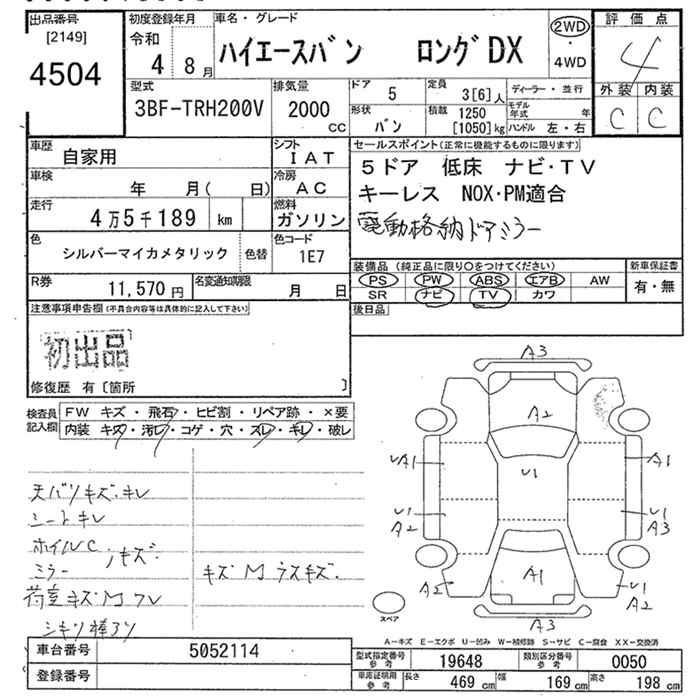 出品番号 初度登録年月 車名・グレード 評価点
[2149] 令和 2WD
4504 4 8月 ハイエースバン ロングDX ・ 4
4WD
外装 内装
C C
型式 排気量 ドア 5 定員 3[6]人 ディーラー・並行
3BF-TRH200V 2000 cc 形状 バン 積載 1250 [1050]kg モデル年式 年
ハンドル 左・右
車歴 自家用 シフト IAT
車検 年 月( 日) 冷房 AC
走行 4万5千189 km 燃料 ガソリン
色 シルバーマイカメタリック 色替 色コード 1E7
R券 11,570円 名変通知期限 月 日
セールスポイント(正常に機能するものに限ります)
5ドア 低床 ナビ・TV
キーレス NOX・PM適合
電動格納ドアミラー
装備品 (純正品に限り○をつけてください) 新車保証書
PS PW ABS エアB AW 有・無
SR ナビ TV カワ
後日品
注意事項申告欄(不具合内容等は具体的に記入して下さい)
初出品
修復歴 有〔箇所 〕
検査員記入欄 FW キズ・飛石・ヒビ割・リペア跡・×要
内装 キズ・汚レ・コゲ・穴・スレ・キレ・破レ
天バリキズ・キレ
シートキレ
ホイルC
ミラー 〃キズ・
荷室キズMワレ
シキリ棒アリ
キズM ウスキズ・
A3
A2
UA1 U1 A1
U1 U1
A2 A3
A2 A1 U1
A2
A3
スペア
A-キズ E-エクボ U-凹み W-補修跡 S-サビ C-腐食 XX-交換済
車台番号 5052114
登録番号
型式指定番号 参考 19648 類別区分番号 参考 0050
車庫証明用 参考 長さ 469 cm 幅 169 cm 高さ 198 cm